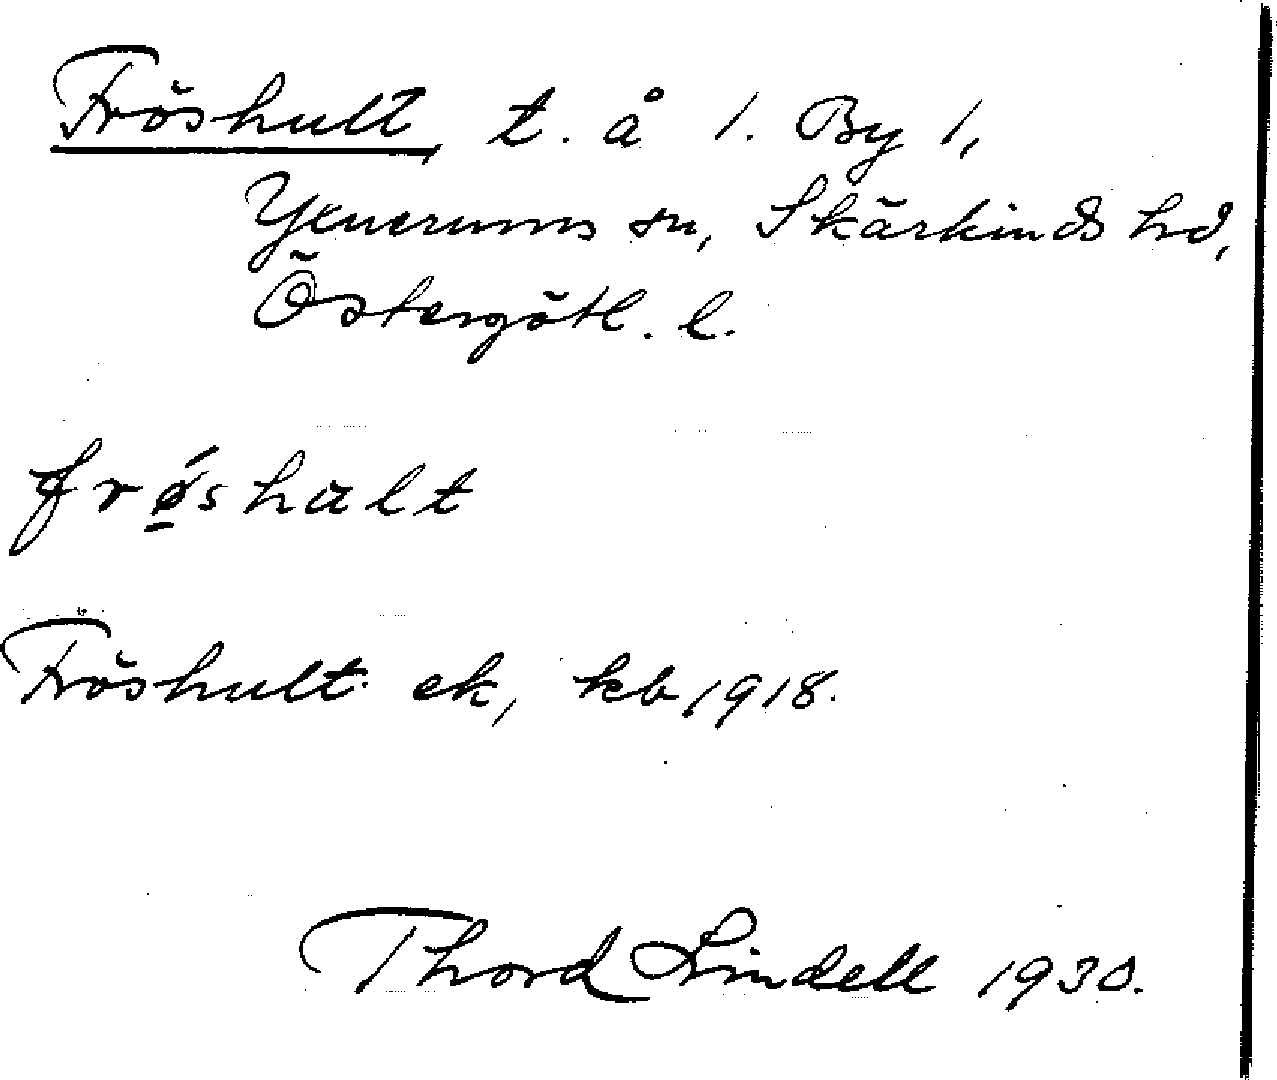 Fröshult, t. å 1. By 1,
Yxnerums sn, Skärkinds hd,
Östergötl. l.
frǿ̱shalt
Fröshult ek, kb 1918.
Thord Lindell 1930.